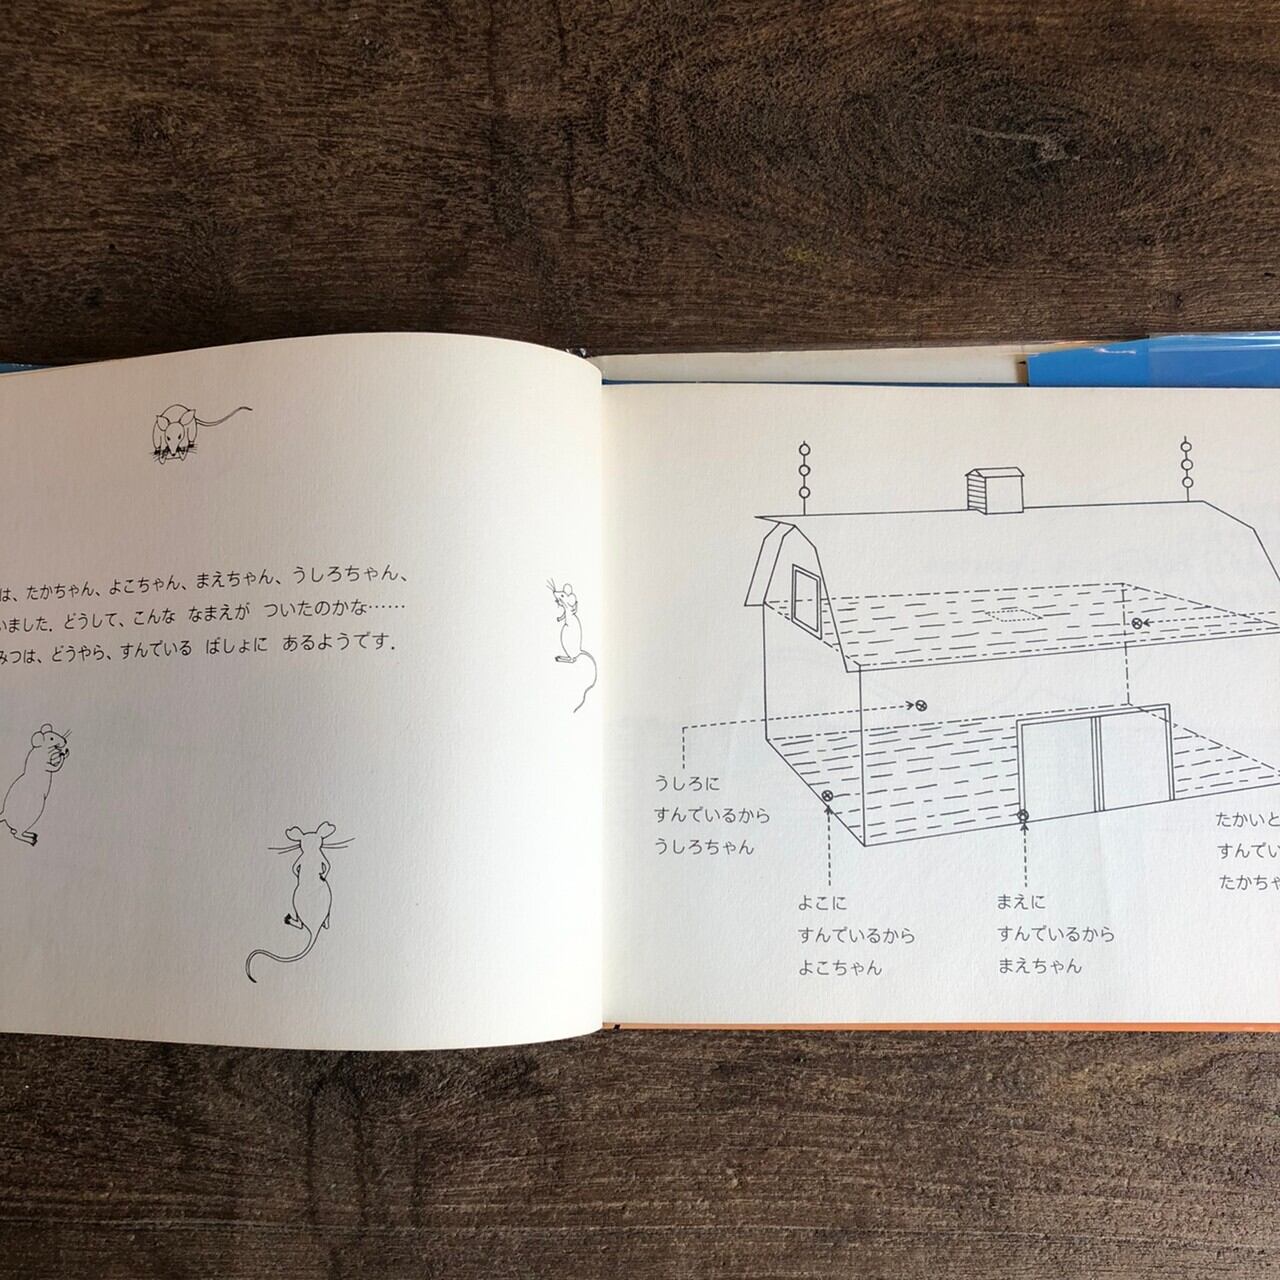 は、たかちゃん、よこちゃん、まえちゃん、うしろちゃん、
いました。どうして、こんな なまえが ついたのかな……
みつは、どうやら、すんでいる ばしょに あるようです.
うしろに
すんでいるから
うしろちゃん
よこに
すんでいるから
よこちゃん
まえに
すんでいるから
まえちゃん
たかいと
すんでい
たかちゃ